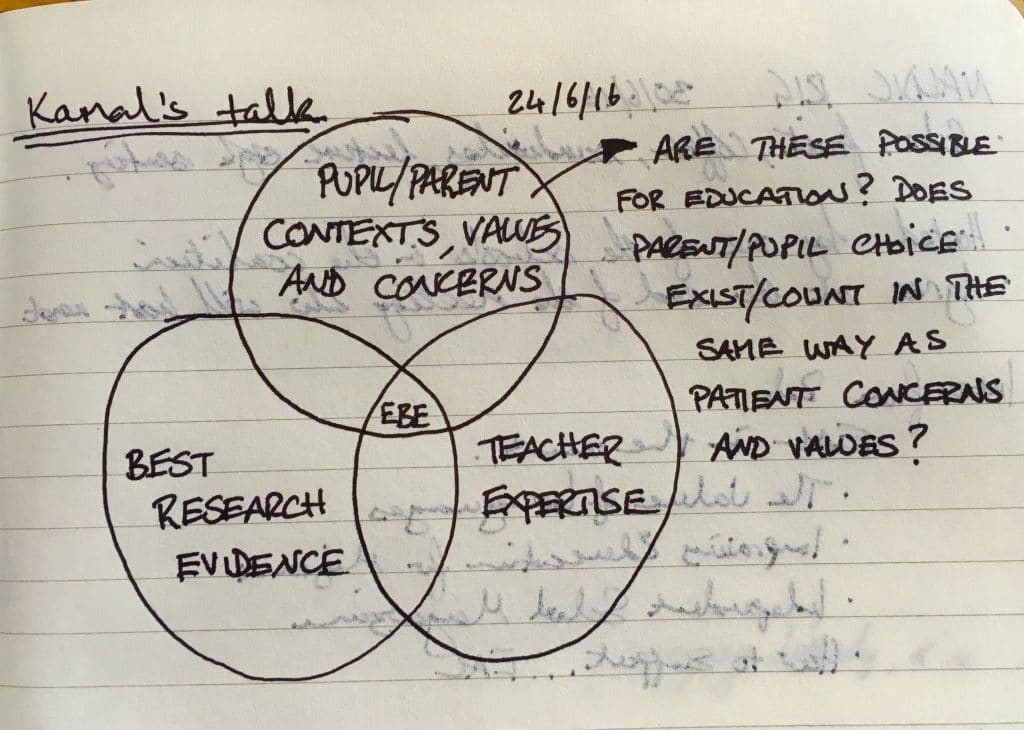 Kamal's talk
24/6/16
PUPIL/PARENT
CONTEXTS, VALUES
AND CONCERNS
ARE THESE POSSIBLE
FOR EDUCATION? DOES
PARENT/PUPIL CHOICE
EXIST/COUNT IN THE
SAME WAY AS
PATIENT CONCERNS
AND VALUES?
EBE
BEST
RESEARCH
EVIDENCE
TEACHER
EXPERTISE